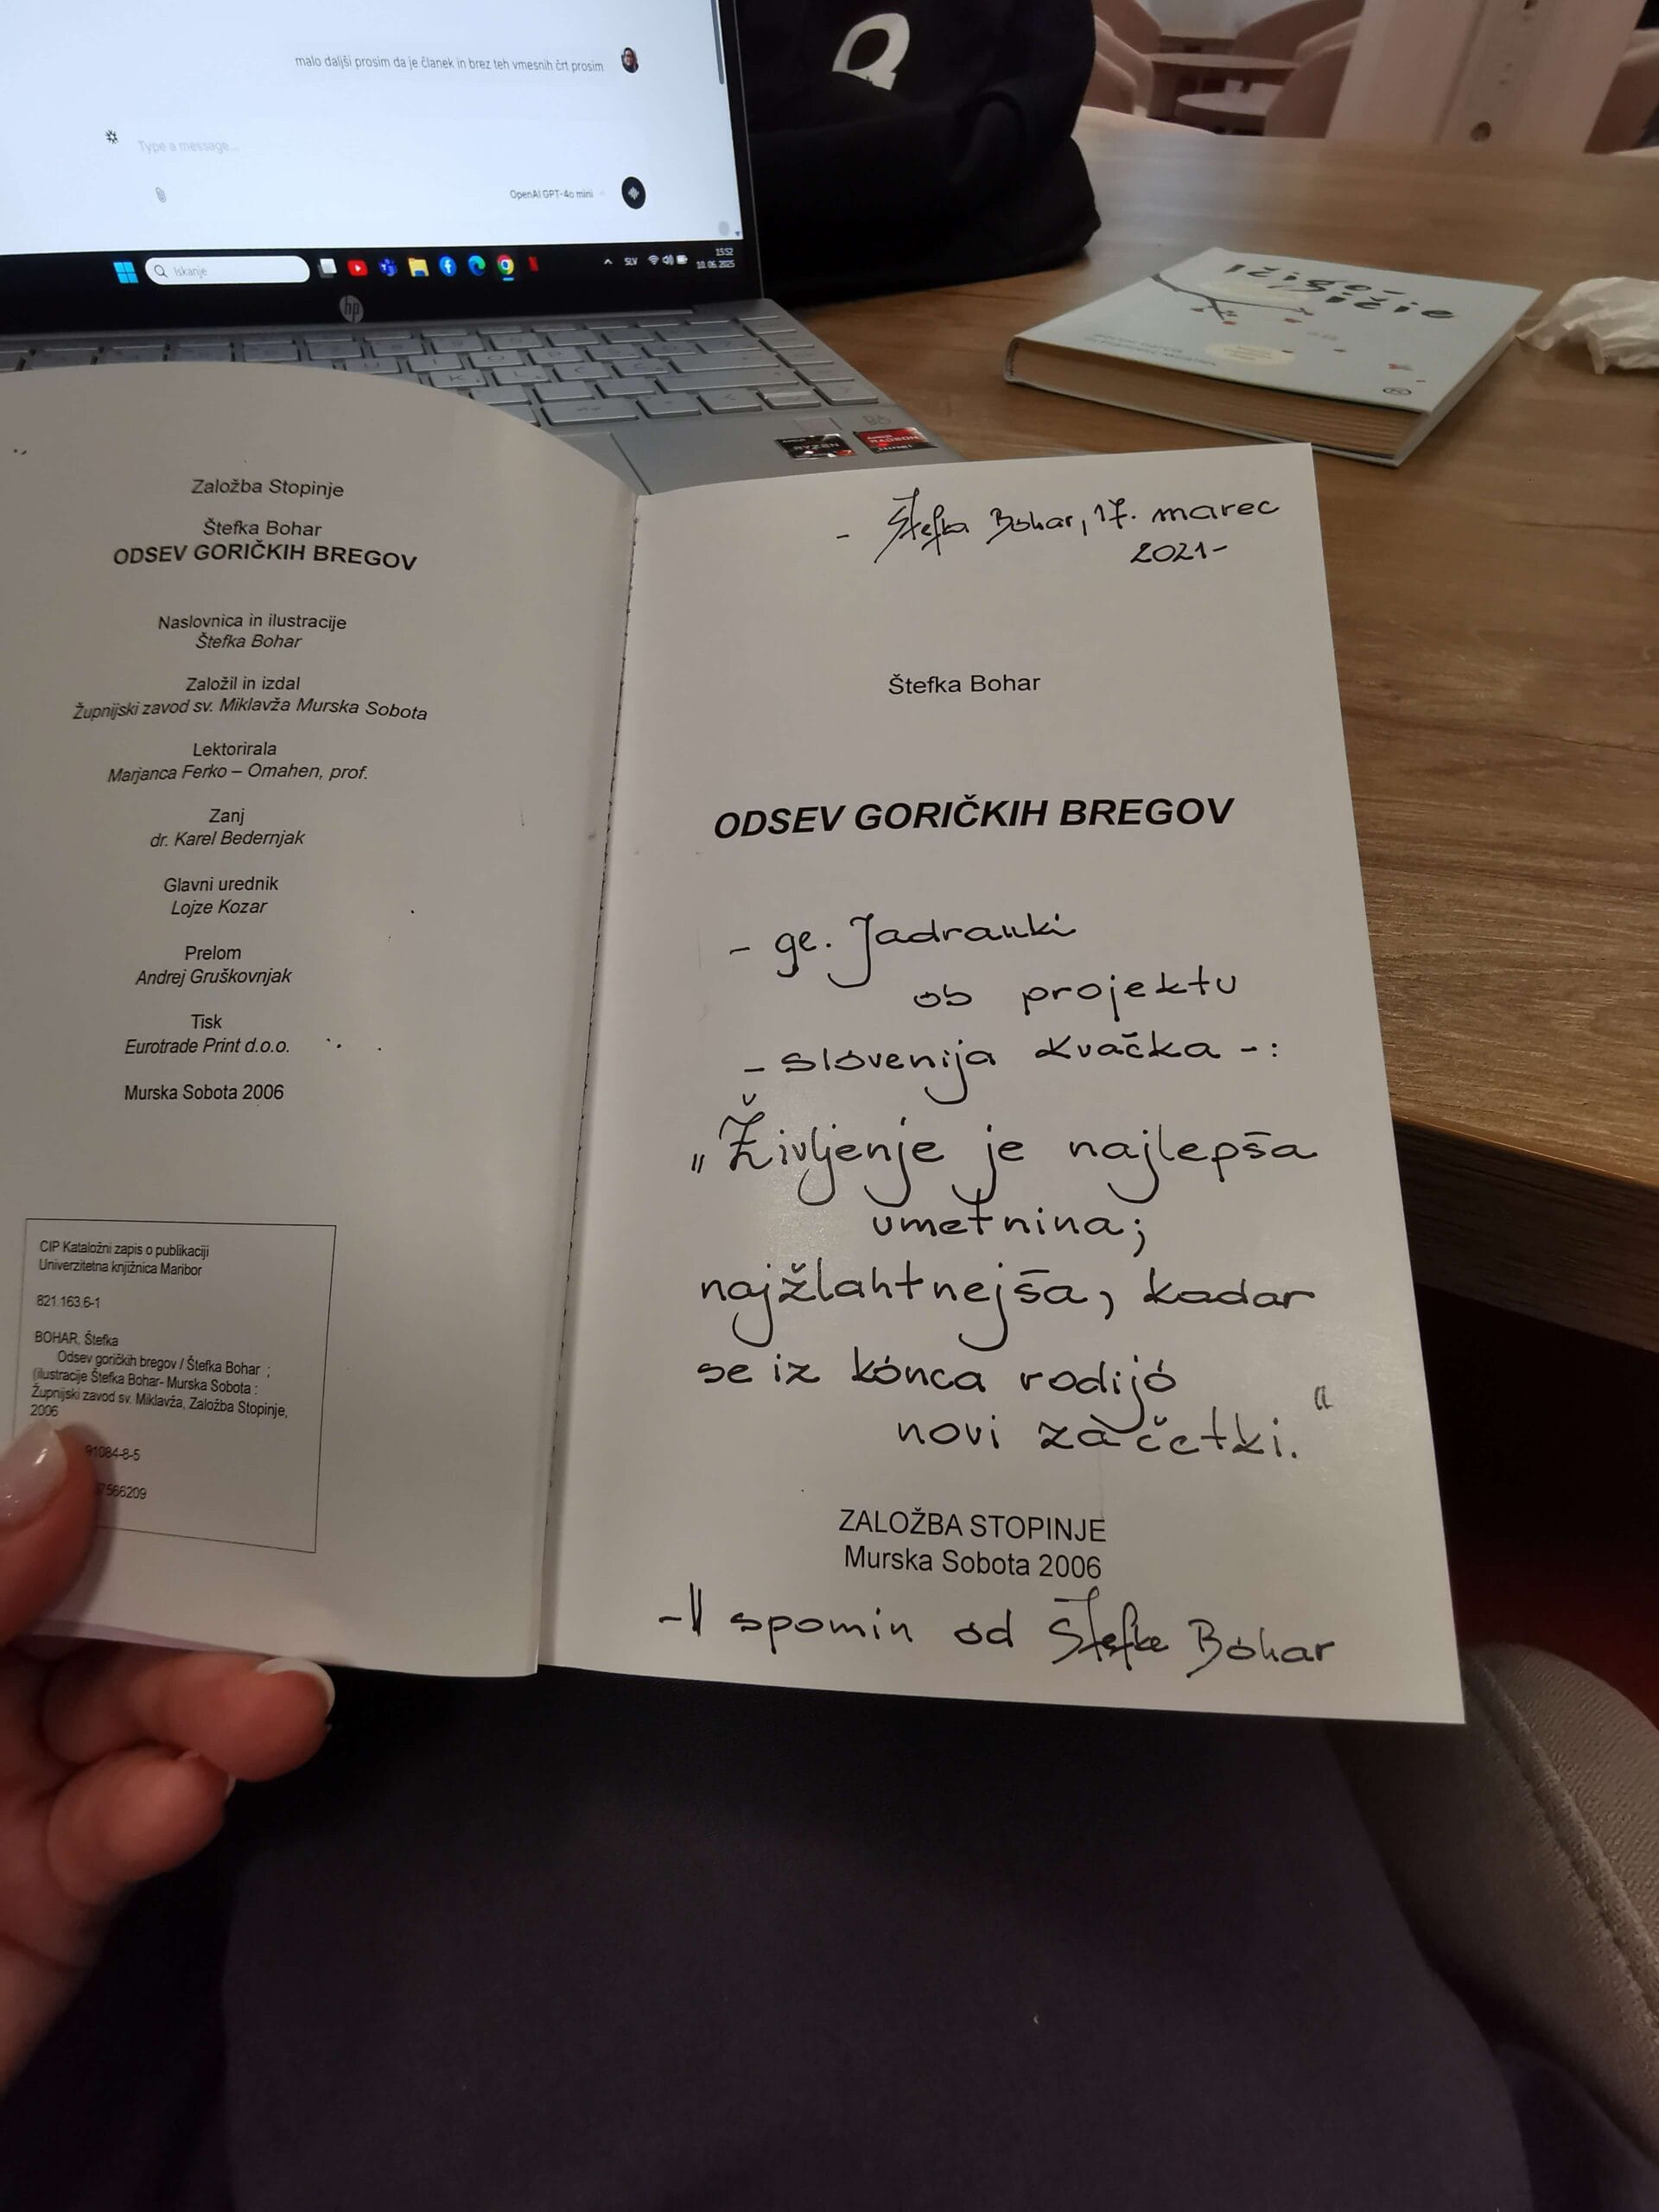 malo daljši prosim da je članek in brez teh vmesnih črt prosim
Type a message...
OpenAI GPT-4o mini
Iskanje
SLV
15:52
10.06.2025
hp
RYZEN
RADEON
Q
Ičigo-
ičie
Založba Stopinje
Štefka Bohar
ODSEV GORIČKIH BREGOV
Naslovnica in ilustracije
Štefka Bohar
Založil in izdal
Župnijski zavod sv. Miklavža Murska Sobota
Lektorirala
Marjanca Ferko – Omahen, prof.
Zanj
dr. Karel Bedernjak
Glavni urednik
Lojze Kozar
Prelom
Andrej Gruškovnjak
Tisk
Eurotrade Print d.o.o.
Murska Sobota 2006
CIP Kataložni zapis o publikaciji
Univerzitetna knjižnica Maribor
821.163.6-1
BOHAR, Štefka
Odsev goričkih bregov / Štefka Bohar ;
(ilustracije Štefka Bohar- Murska Sobota :
Župnijski zavod sv. Miklavža, Založba Stopinje,
2006
91084-8-5
7566209
- Štefka Bohar, 17. marec
2021-
Štefka Bohar
ODSEV GORIČKIH BREGOV
- ge. Jadranki
ob projektu
- slovenija kvačka -:
„Življenje je najlepša
umetnina;
najžlahtnejša, kadar
se iz konca rodijo
novi začetki.“
ZALOŽBA STOPINJE
Murska Sobota 2006
-V spomin od Štefke Bohar